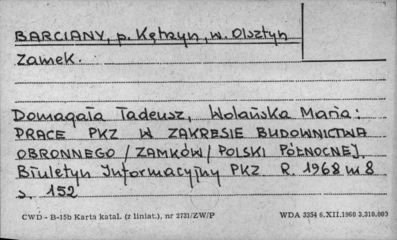 BARCIANY, p. Kętrzyn, w. Olsztyn
Zamek.
Domagała Tadeusz, Wolańska Maria:
PRACE PKZ W ZAKRESIE BUDOWNICTWA
OBRONNEGO /ZAMKÓW/ POLSKI PÓŁNOCNEJ.
Biuletyn Informacyjny PKZ R. 1968 nr 8
s. 152
CWD - B-15b Karta katal. (z liniat.), nr 2731/ZW/P WDA 3354 6.XII.1966 3.310.000